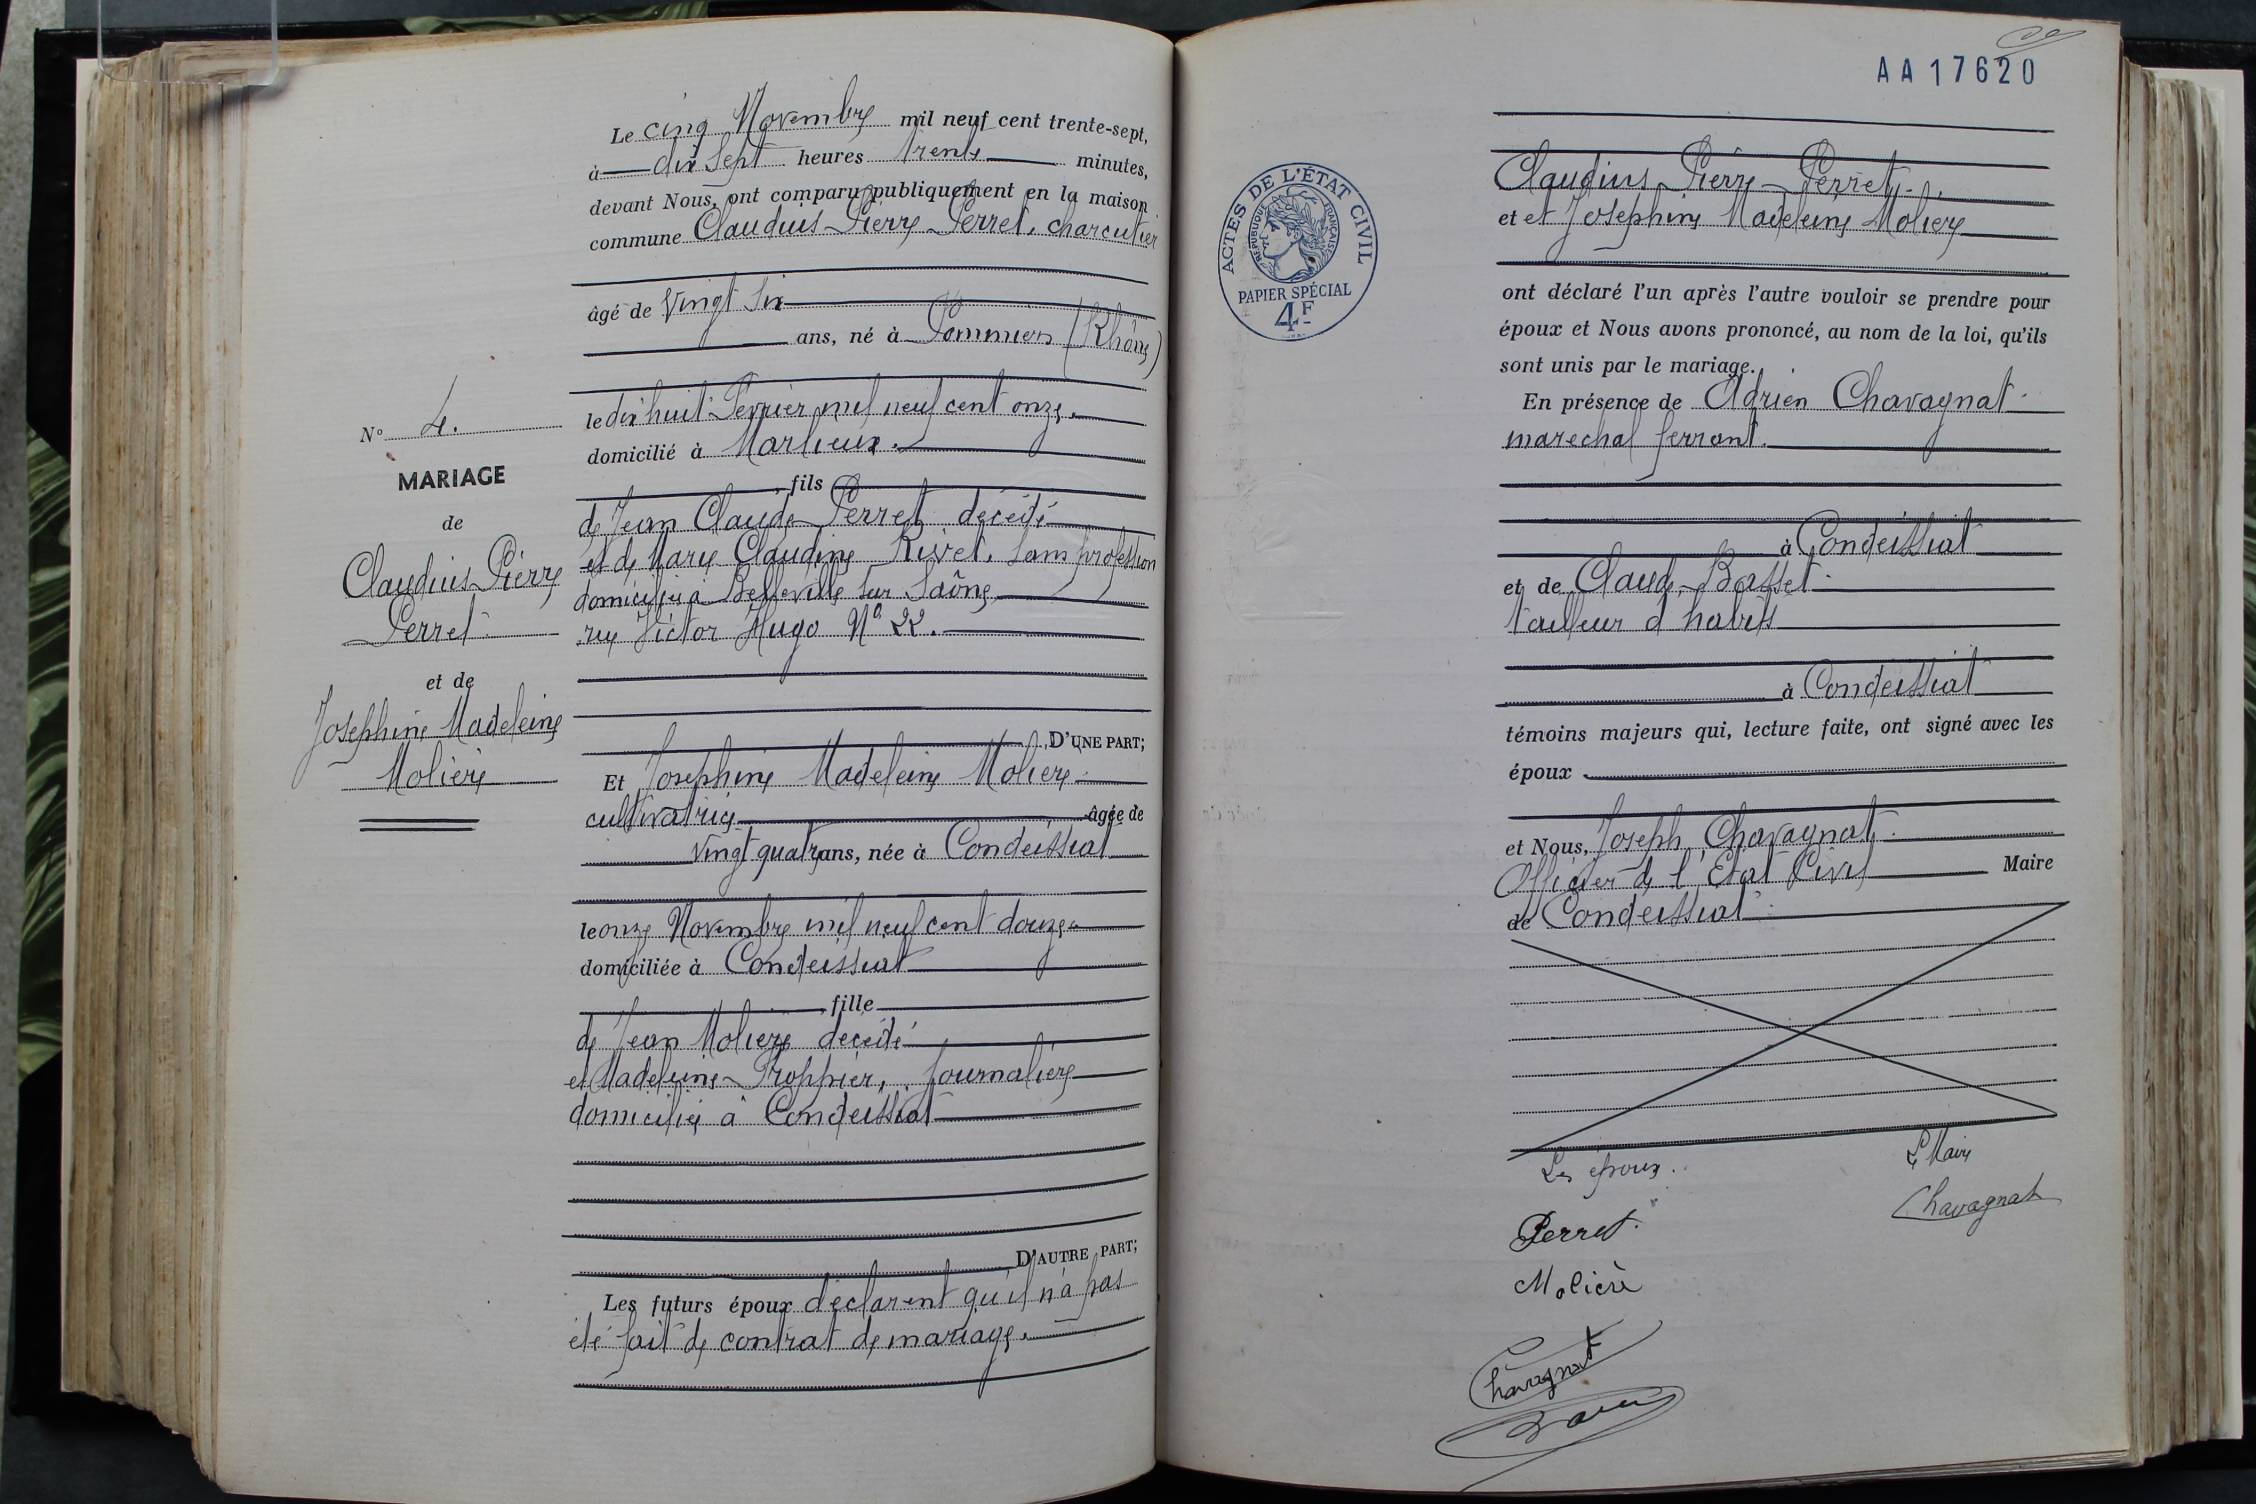 N° 4.
MARIAGE
de
Claudius Pierre
Perret
et de
Josephine Madeleine
Moliere
Le cinq Novembre mil neuf cent trente-sept,
à dix sept heures trente minutes,
devant Nous, ont comparu publiquement en la maison
commune Claudius Pierre Perret, charcutier
âgé de vingt six
ans, né à Pommiers (Rhône)
le dix huit Février mil neuf cent onze.
domicilié à Marlieux.
fils
de Jean Claude Perret décédé
et de Marie Claudine Rivet, sans profession
domiciliée à Belleville sur Saône
rue Victor Hugo N° 22.
D'UNE PART;
Et Josephine Madeleine Moliere
cultivatrice âgée de
vingt quatre ans, née à Condeissiat
le onze Novembre mil neuf cent douze
domiciliée à Condeissiat
fille
de Jean Moliere décédé
et Madeleine Proppier, journalière
domiciliée à Condeissiat
D'AUTRE PART;
Les futurs époux déclarent qu'il n'a pas
été fait de contrat de mariage.
AA17620
ACTES DE L'ÉTAT CIVIL
RÉPUBLIQUE FRANÇAISE
PAPIER SPÉCIAL
4F
Claudius Pierre Perret
et et Josephine Madeleine Moliere
ont déclaré l'un après l'autre vouloir se prendre pour
époux et Nous avons prononcé, au nom de la loi, qu'ils
sont unis par le mariage.
En présence de Adrien Chavagnat
marechal ferrant.
à Condeissiat
et de Claude Basset
tailleur d'habits
à Condeissiat
témoins majeurs qui, lecture faite, ont signé avec les
époux
et Nous, Joseph Chavagnat
Officier de l'Etat Civil Maire
de Condeissiat
Les époux.
Le Maire
Chavagnat
Perret.
Molière
Chavagnat